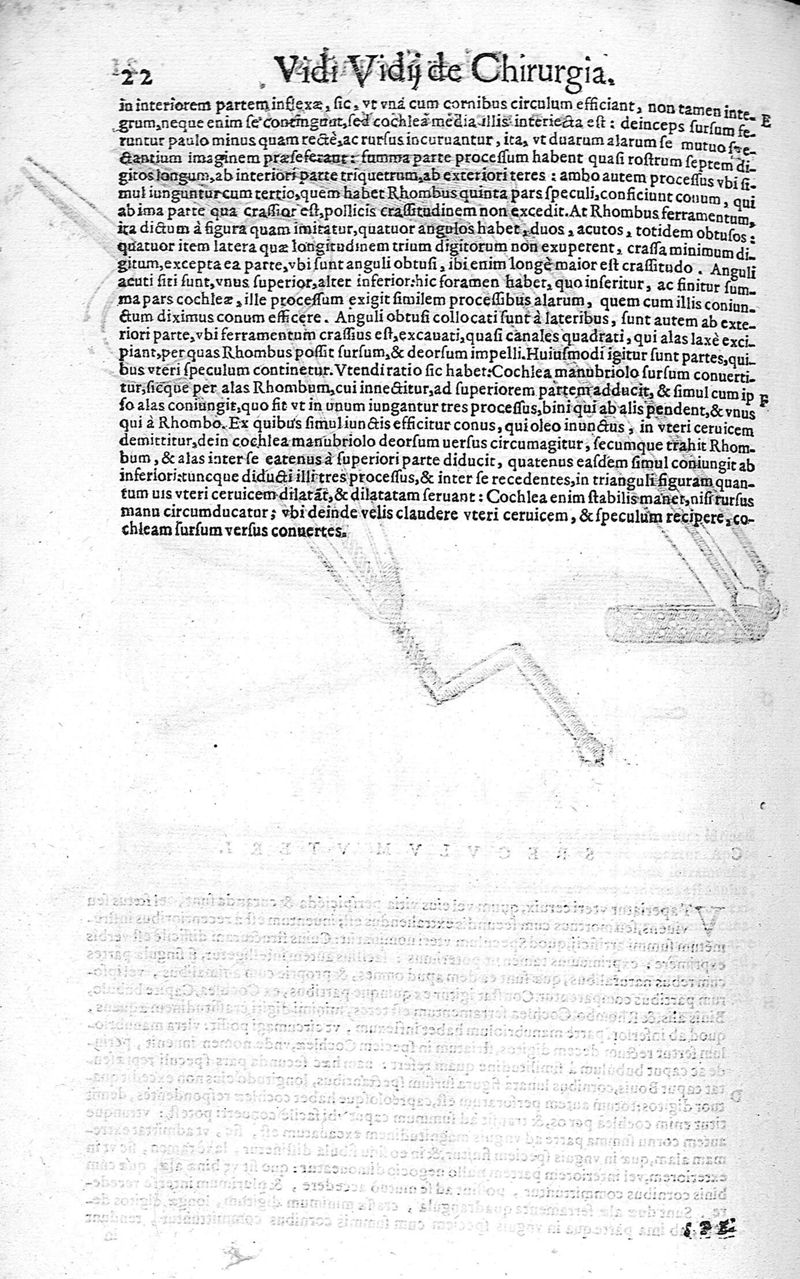 22
Vidi Vidij de Chirurgia.
in interiorem partem inflexæ, sic, vt vná cum cornibus circulum efficiant, non tamen inte-
grum, neque enim se contingunt, sed cochlea media illis interiecta est: deinceps sursum fe-
E
runtur paulo minus quam rectè, ac rursus incuruantur, ita, vt duarum alarum se mutuo spe-
ctantium imaginem præseferant: summa parte processum habent quasi rostrum septem di-
gitos longum, ab interiori parte triquetrum, ab exteriori teres: ambo autem processus vbi si-
mul iunguntur cum tertio, quem habet Rhombus quinta pars speculi, conficiunt conum, qui
ab ima parte qua crassior est, pollicis crassitudinem non excedit. At Rhombus ferramentum,
ita dictum à figura quam imitatur, quatuor angulos habet, duos, acutos, totidem obtusos:
quatuor item latera quæ longitudinem trium digitorum non exuperent, crassa minimum di-
gitum, excepta ea parte, vbi sunt anguli obtusi, ibi enim longè maior est crassitudo. Anguli
acuti siti sunt, vnus superior, alter inferior: hic foramen habet, quo inseritur, ac finitur sum-
ma pars cochleæ, ille processum exigit similem processibus alarum, quem cum illis coniun-
ctum diximus conum efficere. Anguli obtusi collocati sunt à lateribus, sunt autem ab exte-
riori parte, vbi ferramentum crassius est, excauati, quasi canales quadrati, qui alas laxè exci-
piant, per quas Rhombus possit sursum, & deorsum impelli. Huiusmodi igitur sunt partes, qui-
bus vteri speculum continetur. Vtendi ratio sic habet: Cochlea manubriolo sursum conuerti-
tur, sicque per alas Rhombum, cui innectitur, ad superiorem partem adducit, & simul cum ip
F
so alas coniungit, quo fit vt in unum iungantur tres processus, bini qui ab alis pendent, & vnus
qui à Rhombo. Ex quibus simul iunctis efficitur conus, qui oleo inunctus, in vteri ceruicem
demittitur, dein cochlea manubriolo deorsum uersus circumagitur, secumque trahit Rhom-
bum, & alas inter se eatenus à superiori parte diducit, quatenus easdem simul coniungit ab
inferiori: tuncque diducti illi tres processus, & inter se recedentes, in trianguli figuram quan-
tum uis vteri ceruicem dilatāt, & dilatatam seruant: Cochlea enim stabilis manet, nisi rursus
manu circumducatur; vbi deinde velis claudere vteri ceruicem, & speculum recipere, co-
chleam sursum versus conuertes.